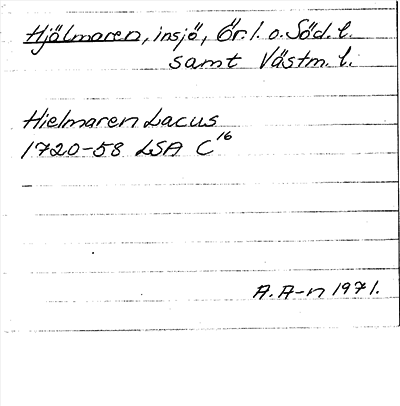 Hjälmaren, insjö, Ör. l. o. Söd. l.
samt Västm. l.
Hielmaren Lacus
1720-58 LSA C16
A. A-n 1971.